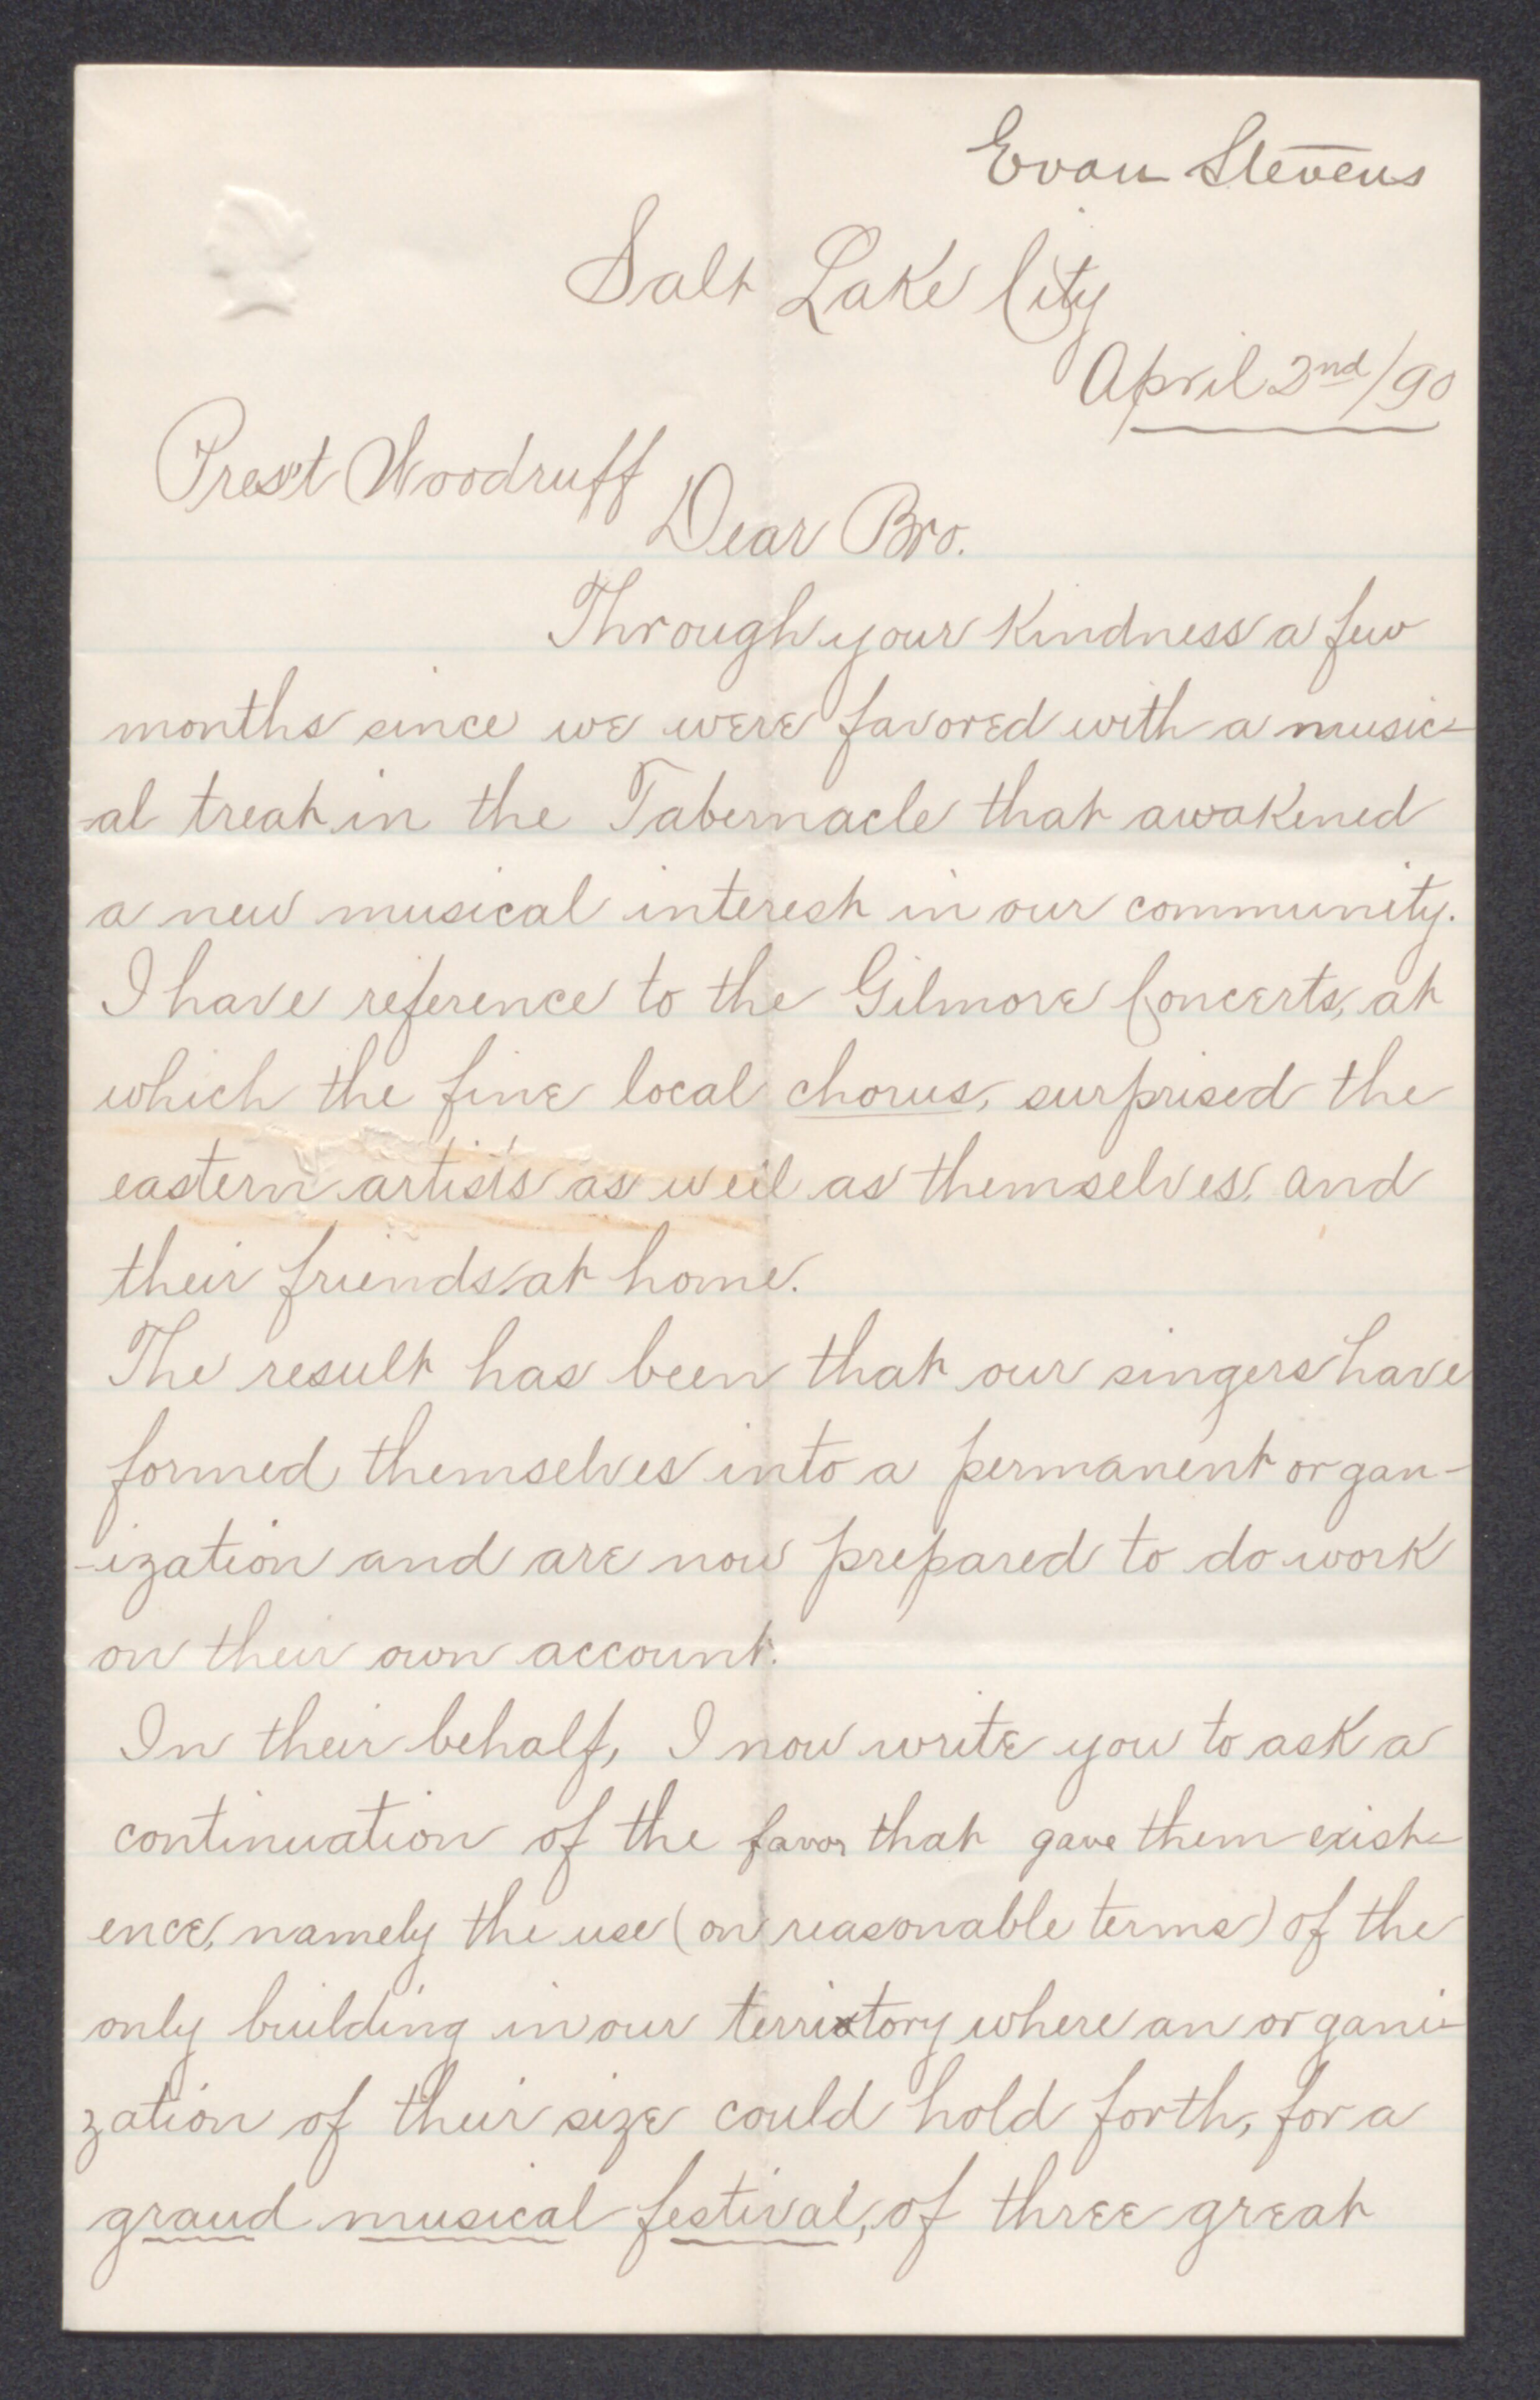 Evan Stevens
Salt Lake City
April 2nd/90
Pres't Woodruff
Dear Bro.
Through your Kindness a few
months since we were favored with a music-
-al treat in the Tabernacle that awakened
a new musical interest in our community.
I have reference to the Gilmore Concerts, at
which the fine local chorus, surprised the
eastern artists as well as themselves, and
their friends at home.
The result has been that our singers have
formed themselves into a permanent organ-
-ization and are now prepared to do work
on their own account.
In their behalf, I now write you to ask a
continuation of the favor that gave them exist-
ence, namely the use (on reasonable terms) of the
only building in our territory where an organi-
zation of their size could hold forth, for a
grand musical festival, of three great